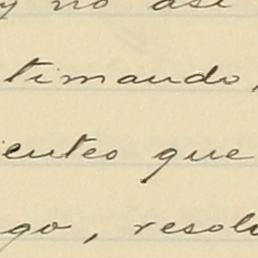 y no así
timando,
ientes que
go, resolv